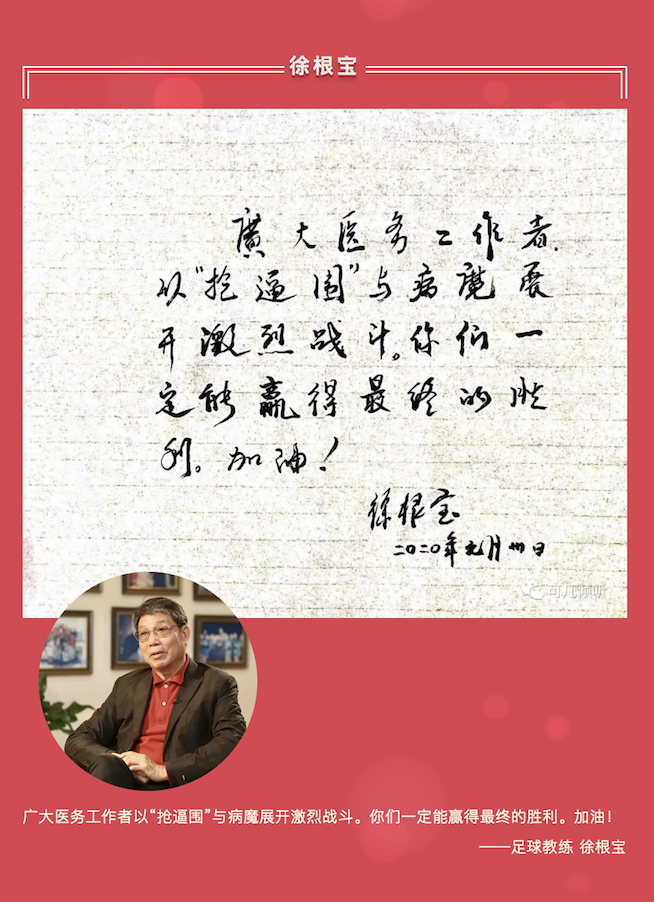 徐根宝
廣大医务工作者.
以“抢逼围”与病魔展
开激烈战斗。你们一
定能赢得最终的胜
利。加油!
徐根宝
二〇二〇年元月卅日
可凡倾听
广大医务工作者以“抢逼围”与病魔展开激烈战斗。你们一定能赢得最终的胜利。加油!
——足球教练 徐根宝